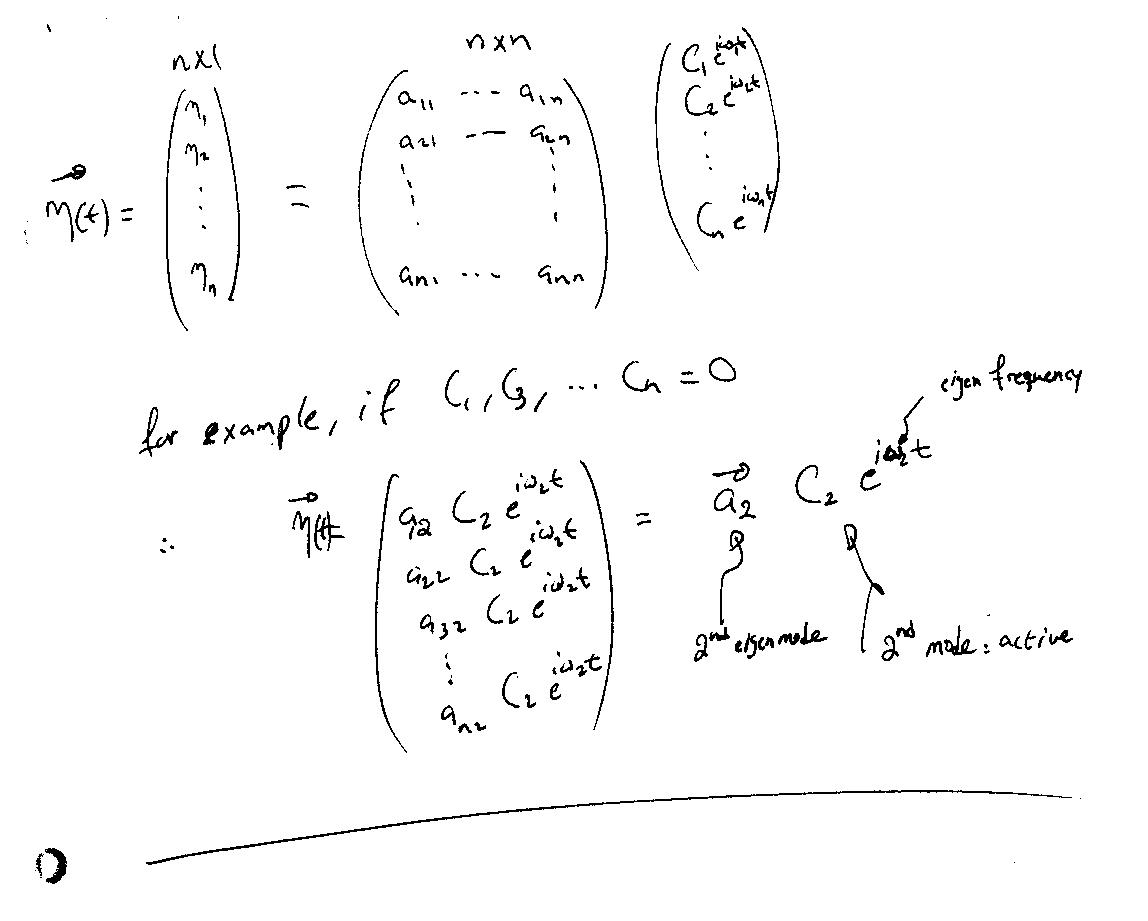 n×1 n×n
η⃗(t) = (η₁ η₂ ⋮ ηₙ) = (a₁₁ --- a₁ₙ
a₂₁ --- a₂ₙ
⋮ ⋮
aₙ₁ ... aₙₙ) (C₁e^{iω₁t}
C₂e^{iω₂t}
⋮
Cₙe^{iωₙt})
for example, if C₁, C₃, ... Cₙ = 0
eigen frequency
∴ η⃗(t)= (a₁₂ C₂ e^{iω₂t}
a₂₂ C₂ e^{iω₂t}
a₃₂ C₂ e^{iω₂t}
⋮
aₙ₂ C₂ e^{iω₂t}) = a⃗₂ C₂ e^{iω₂t}
2nd eigenmode
2nd mode : active